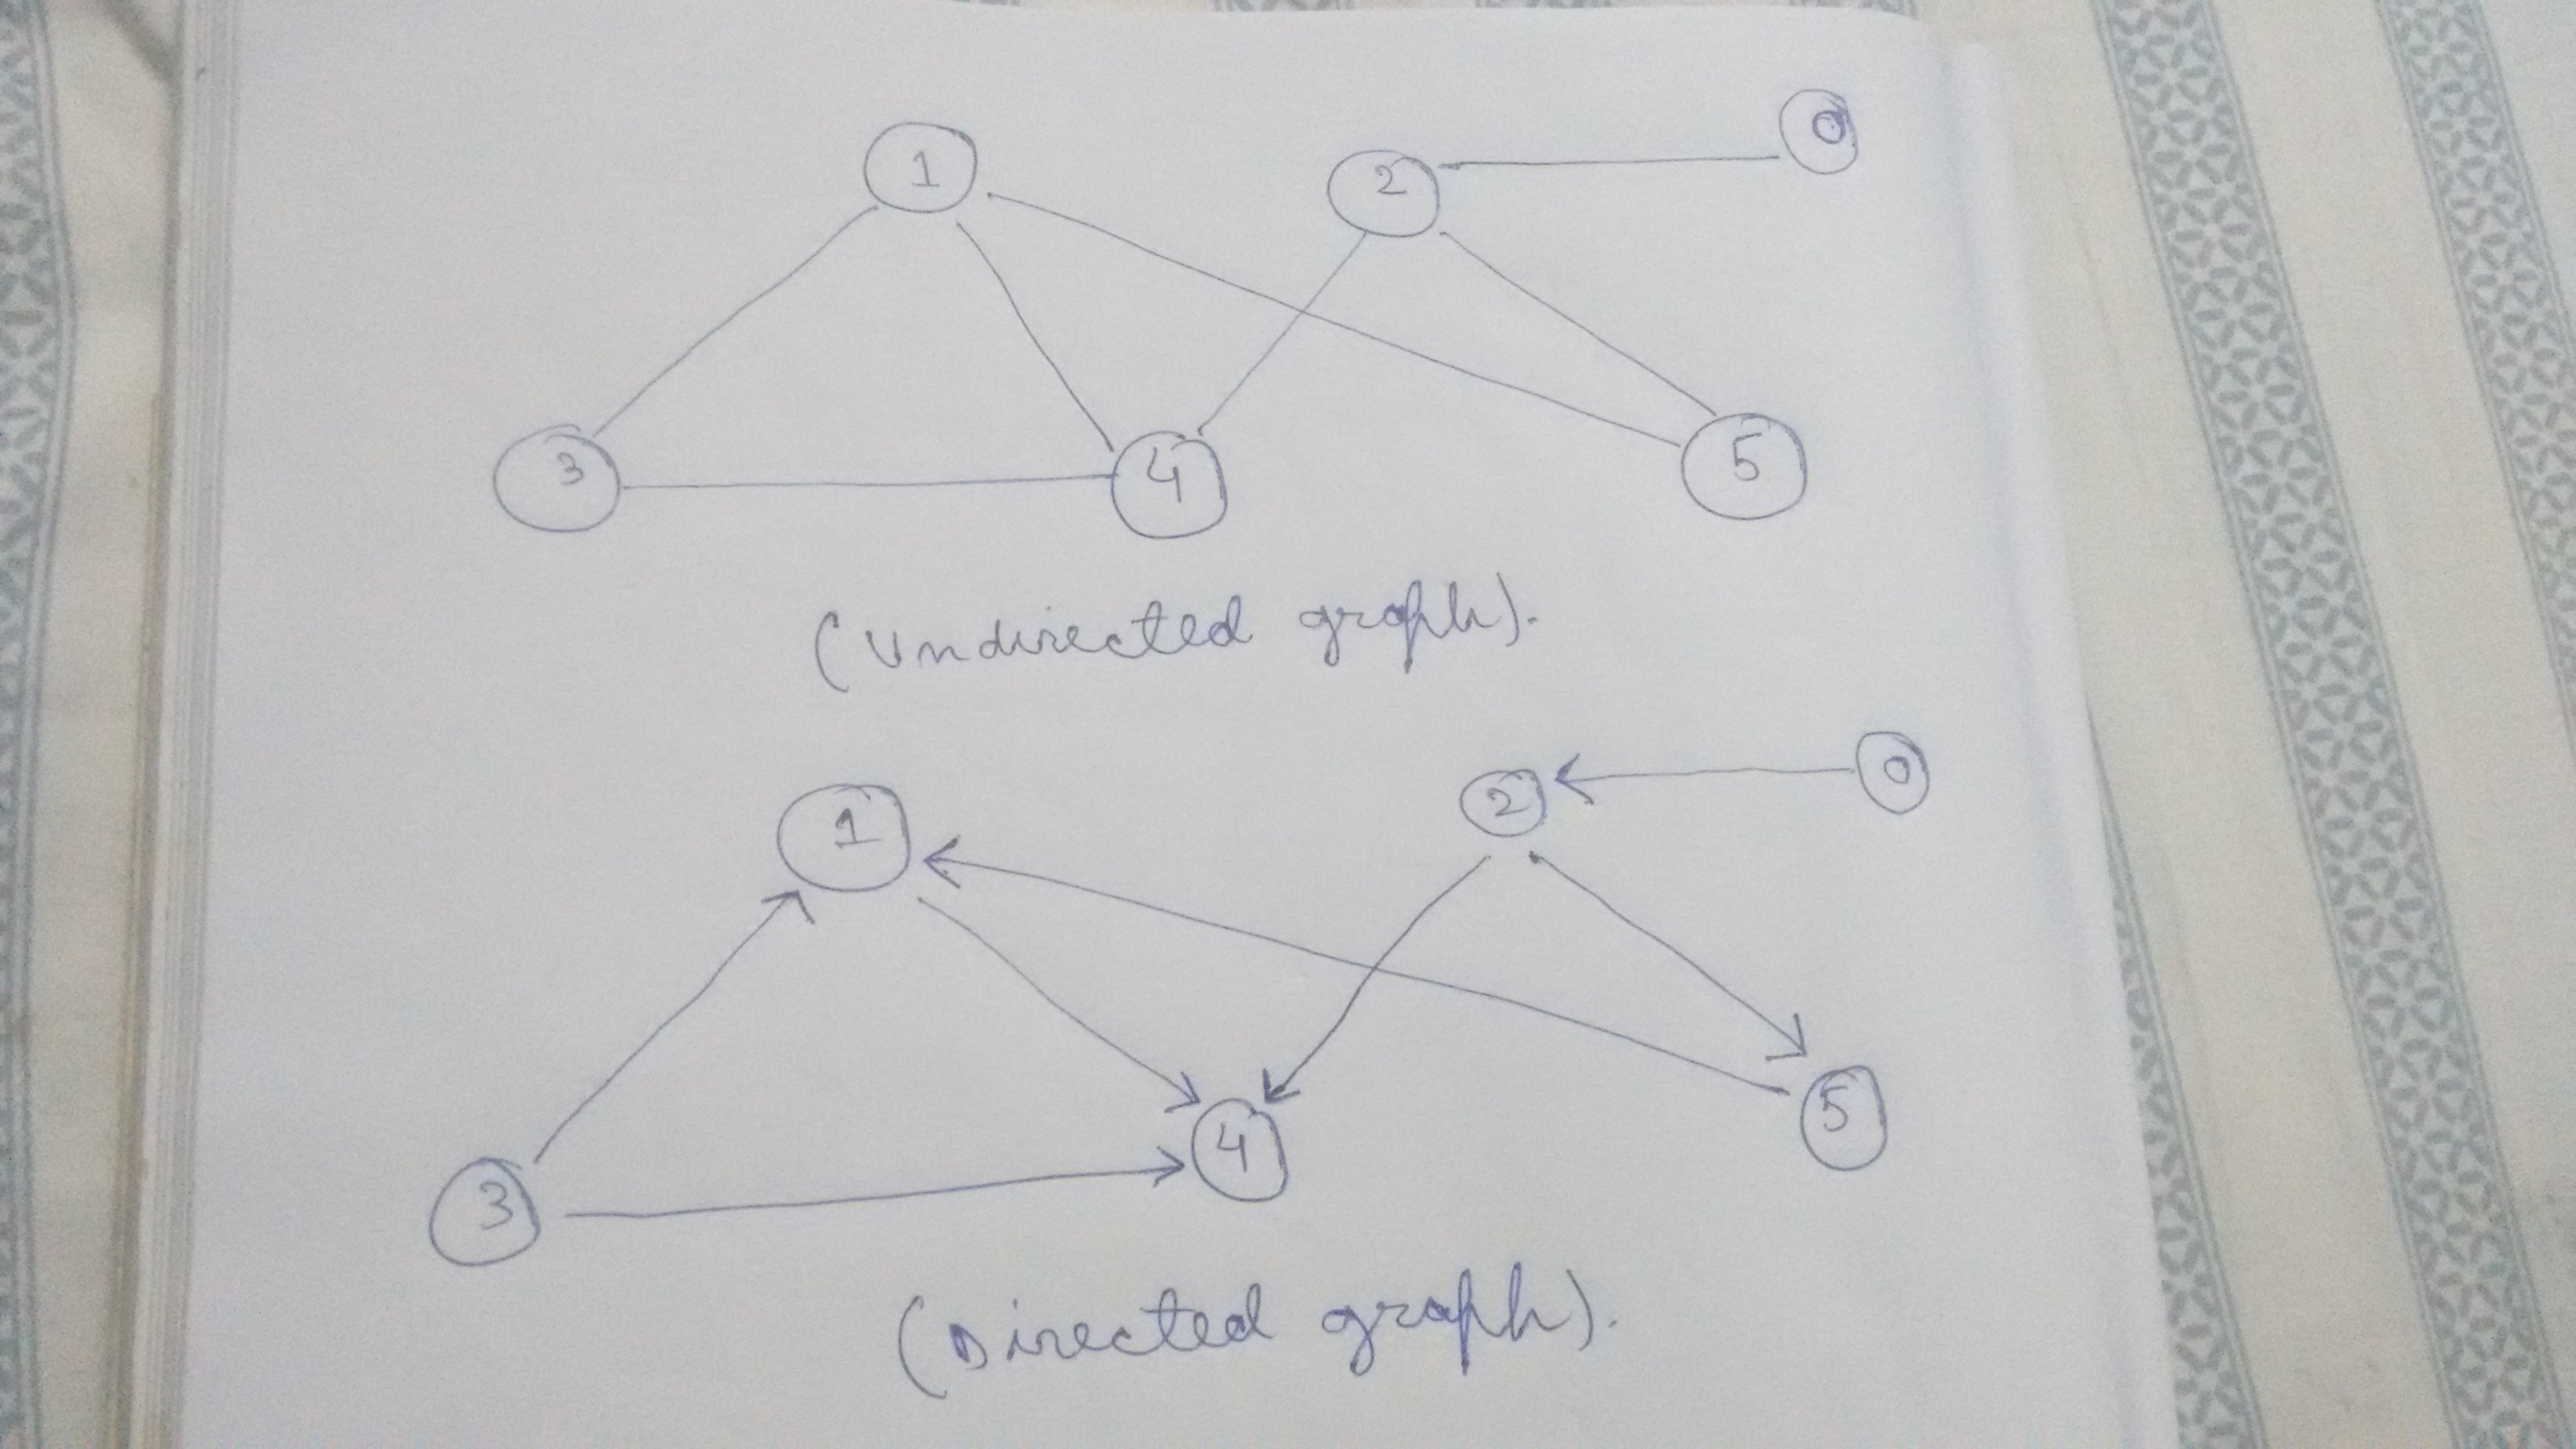 1 2 0
3 4 5
(Undirected graph).
1 2 0
3 4 5
(Directed graph).